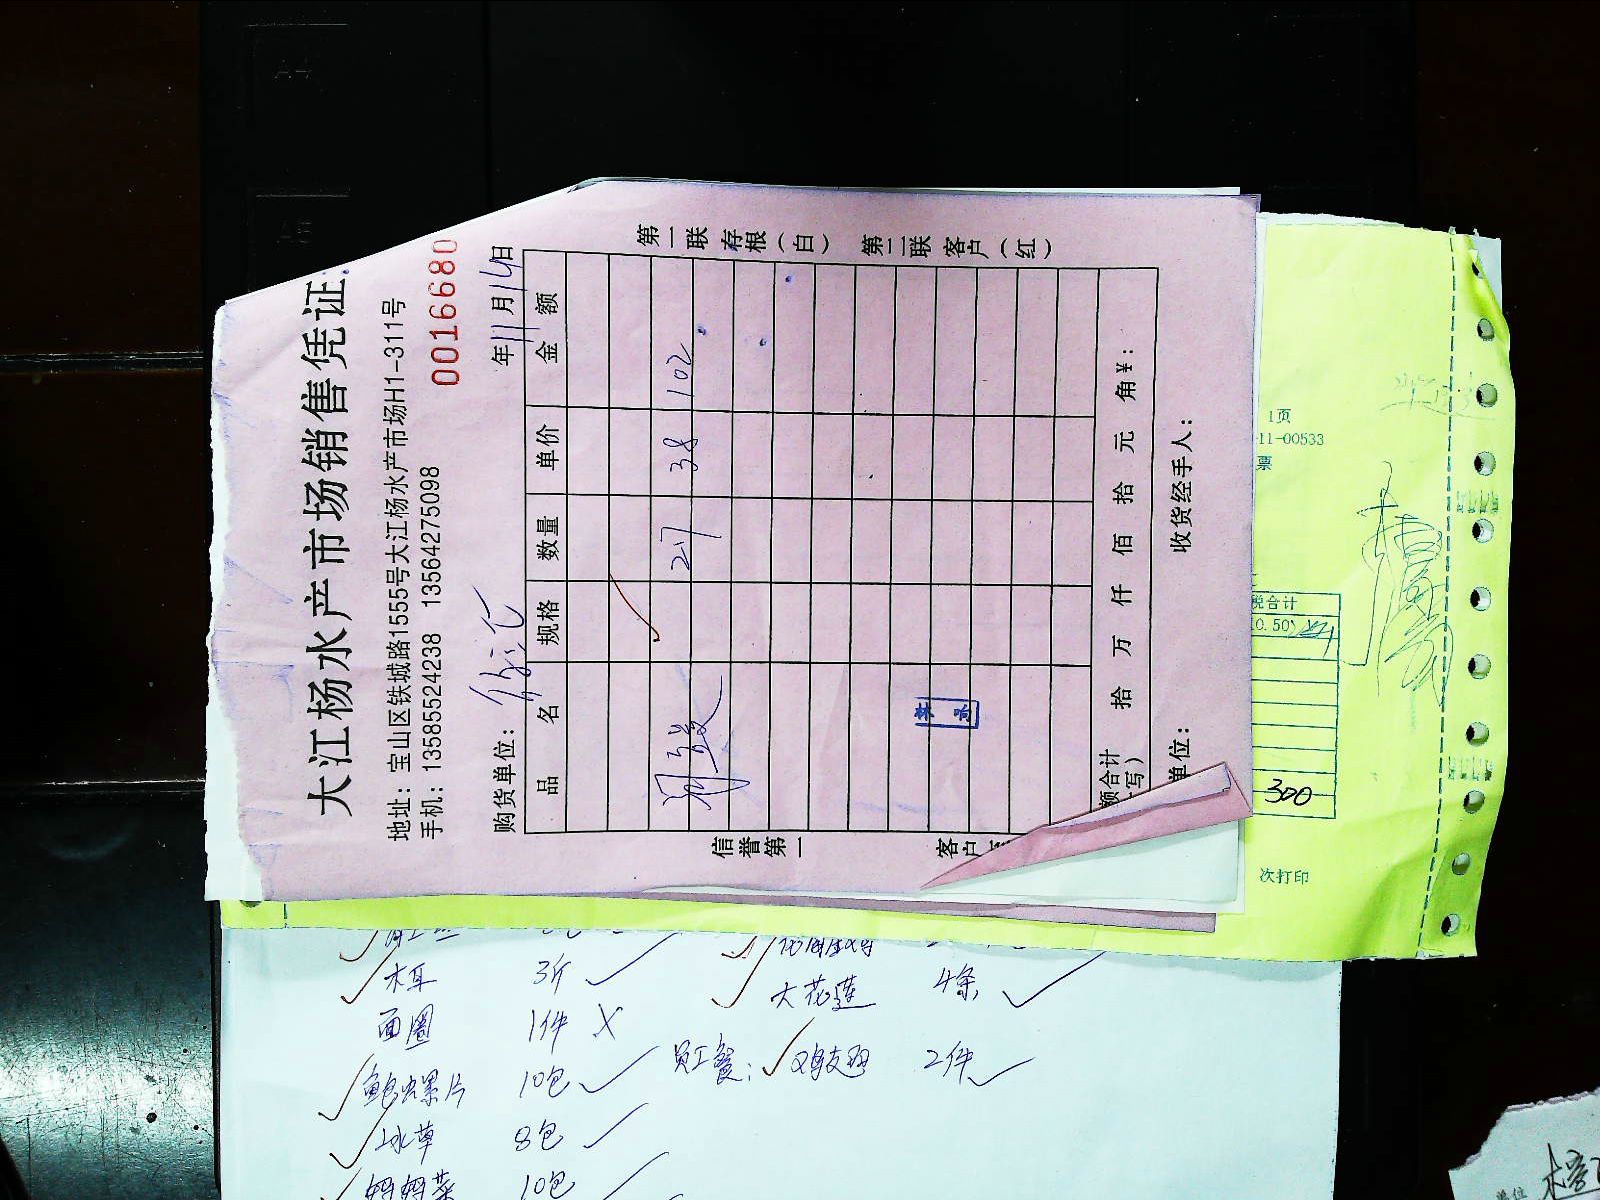 大江杨水产市场销售凭证
地址：宝山区铁城路1555号大江杨水产市场H1-311号
手机：13585524238 13564275098
0016680
购货单位：
年11月14日
品名 规格 数量 单价 金额
27 38 102
额合计
写）
拾 万 仟 佰 拾 元 角 ¥：
单位： 收货经手人：
第一联 存根（白） 第二联 客户（红）
信誉第一
客户
1页
11-00533
票
税合计
0.50
300
次打印
木耳 3斤
面圈 1件 X
鲍螺片 10包
冰草 8包
10包
大花莲 4条
员工餐： 鸡翅 2件
A4
A5
单位